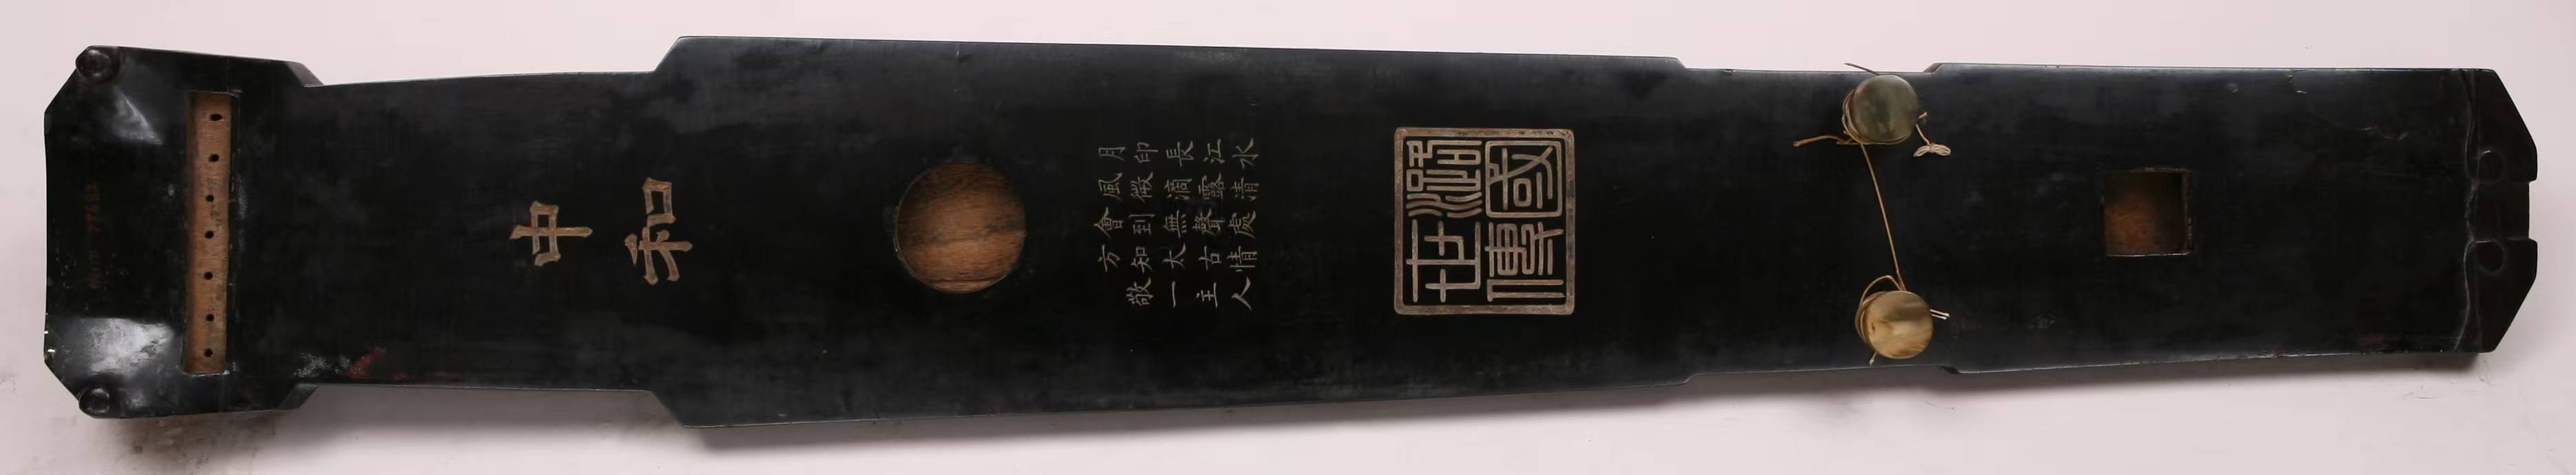 中和
月印長江水
風微滴露清
會到無聲處
方知太古情
敬一主人
潞國世傳